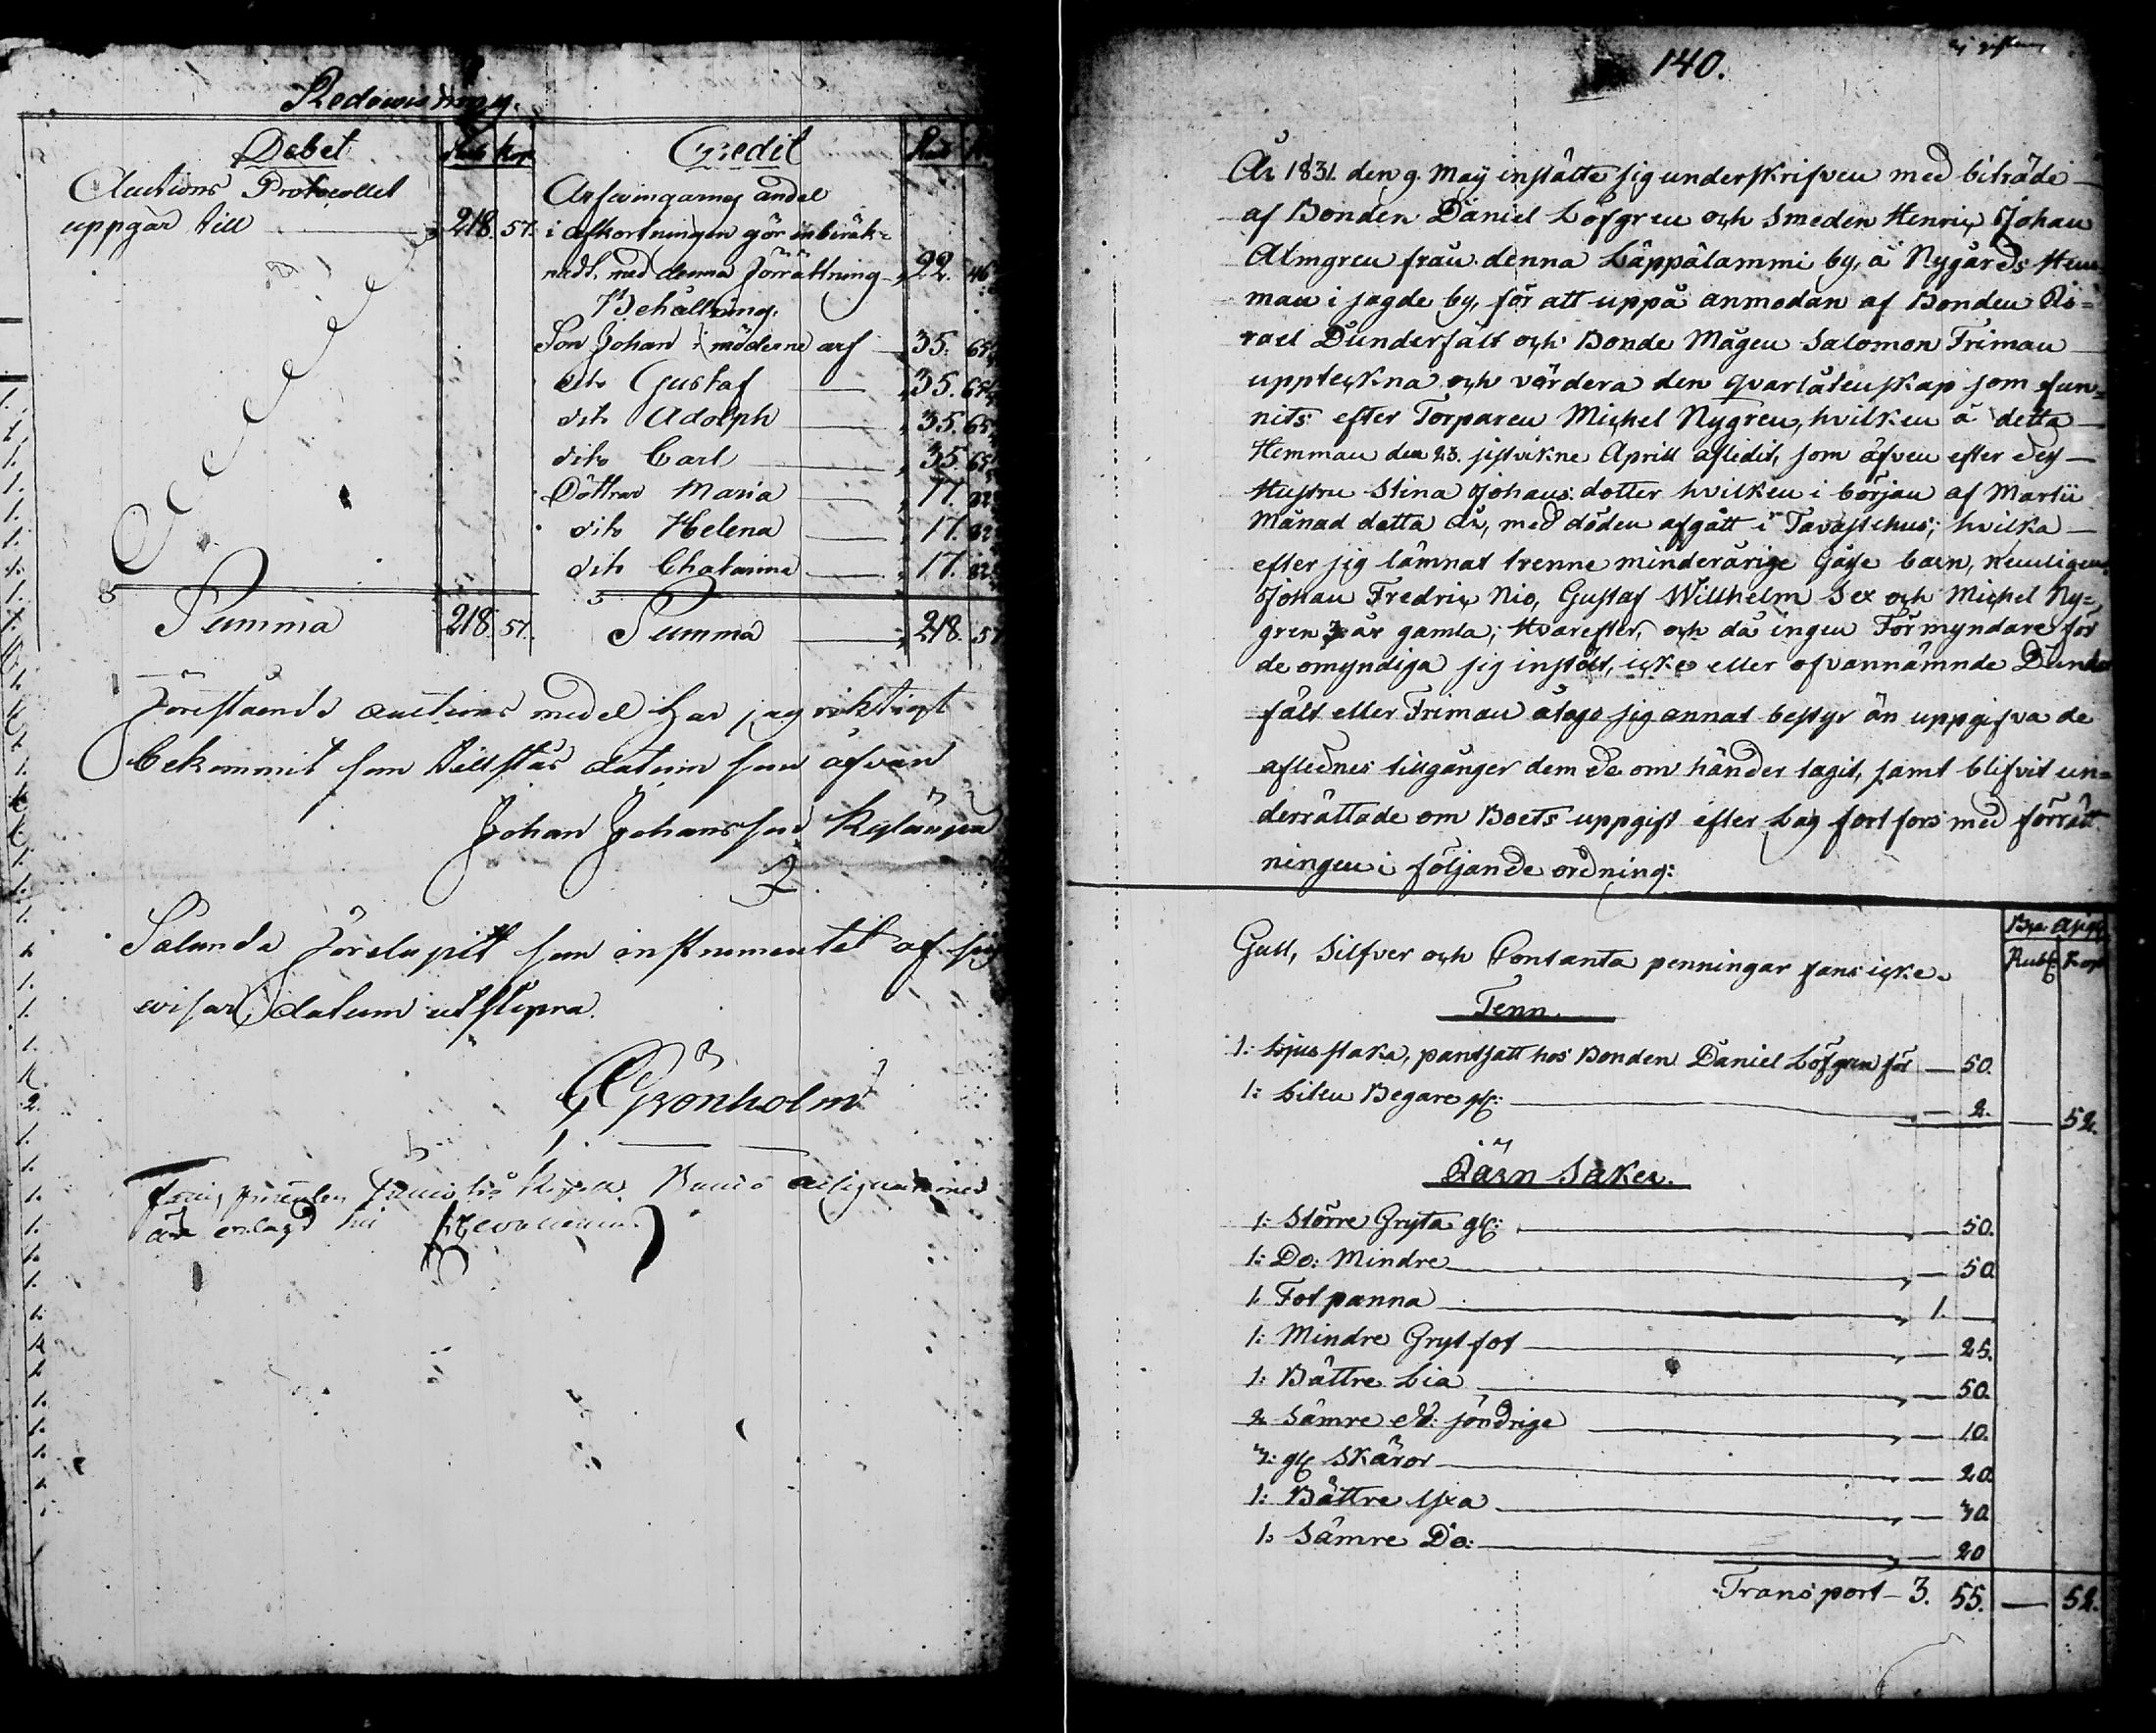 Redovisning.
Debet Rub Kop
Auctions Protocollet
uppgår till 218. 57.
Summa 218. 57.
Credit Rub
Arfvingarnes andel
i afkortningen gör inberäk-
nadt. med denna förrättning 22. 46
Behållning.
Son Johan i möderne arf 35. 65
dito Gustaf 35. 65
dito Adolph 35. 65
dito Carl 35. 65
Döttrar Maria 17. 82
dito Helena 17. 82
dito Chatarina 17. 82
Summa 218. 57
Förestående auctions medel har jag riktigt
bekommit som tillstås datum som åfvan
Johan Johansson
Sålunda förelupit som instrumentet af sig
visar, datum ut supra.
Grönholm
140.
År 1831. den 9. Maij instälte sig underskrifven med biträde
af Bonden Daniel Löfgren och Smeden Henric Johan
Almgren från denna Läppälammi by, å Nygårds Hem-
man i sagde by, för att uppå anmodan af Bonden Is-
rael Dunderfält och Bonde Mågen Salomon Friman
uppteckna och värdera den qvarlåtenskap som fun-
nits efter Torparen Michel Nygren, hvilken å detta
Hemman den 23. sistvikne Aprill aflidit, som äfven efter dess
Hustru Stina Johans dotter hvilken i början af Martii
Månad detta år, med döden afgått i Tavastehus; hvilka
efter sig lämnat trenne minderårige Gåsse barn, nemligen
Johan Fredric Nio, Gustaf Willhelm Sex och Michel Ny-
gren 3 år gamla; Hvarefter, och då ingen Förmyndare för
de omyndiga sig instält, icke eller ofvannämnde Dunder
fält eller Friman åtogo sig annat bestyr än uppgifva de
aflednes tillgångar dem de om händer tagit, samt blifvit un-
derrättade om Boets uppgift efter Lag fortfors med förrätt
ningen i följande ordning:
Bco Assig
Rubl Kop
Gull, Silfver och Contanta penningar fans icke.
Tenn.
1: Ljusstaka, pantsatt hos Bonden Daniel Löfgren för — 50.
1: Liten Begare gl: — 2. — 52.
Järn Saker.
1: Större Gryta gl: — 50.
1: Do: Mindre — 50.
1. Fotpanna 1. —
1: Mindre Grytfot — 25.
1: Bättre Lia — 50.
2 Sämre do: söndrige — 10.
3: gl: Skäror — 20.
1: Bättre Yxa — 30.
1: Sämre Do: — 20
Transport 3. 55. — 52.